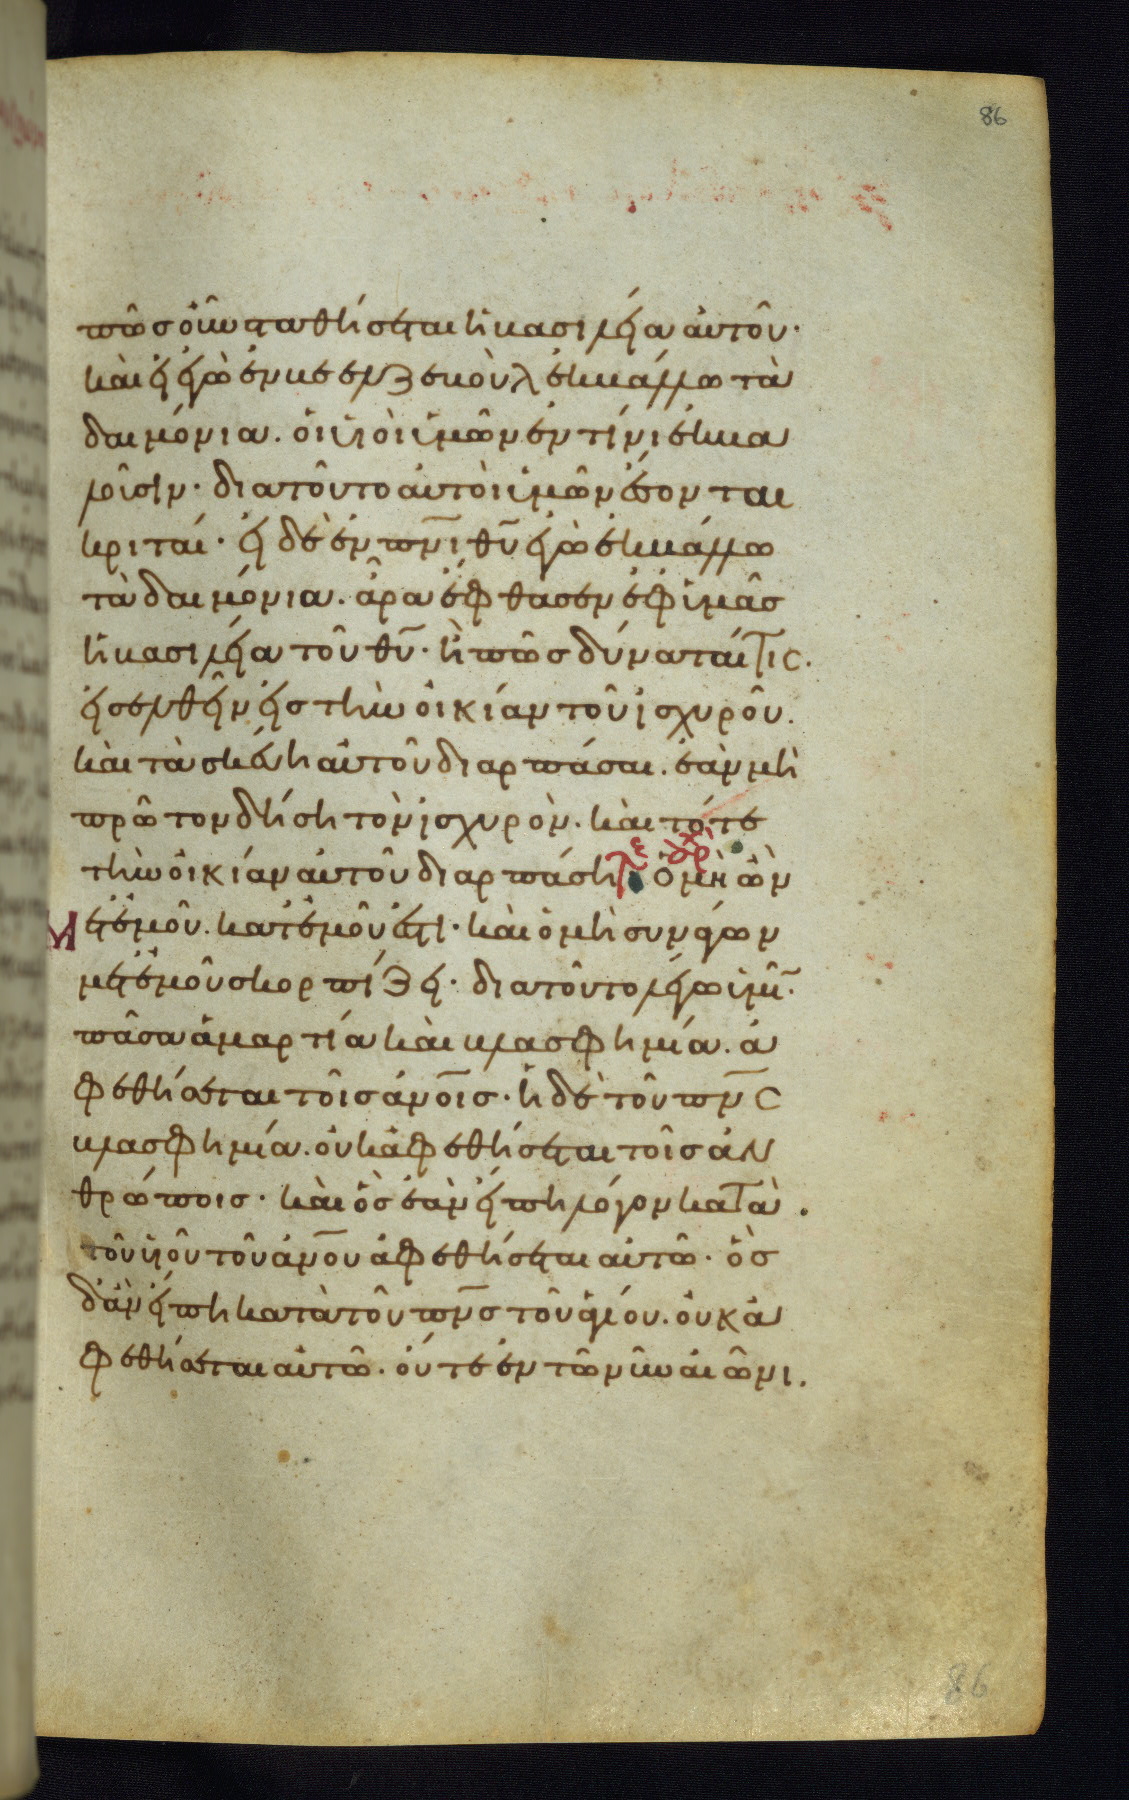 86
πῶσ οὖν σταθήσεται ἡ βασιλεία αὐτοῦ·
καὶ εἰ ἐγὼ ἐν βεελζεβοὺλ ἐκβάλλω τὰ
δαιμόνια. οἱ υἱοὶ ὑμῶν ἐν τίνι ἐκβα
λοῦσιν· διατοῦτο αὐτοὶ ὑμῶν ἔσονται
κριταί· εἰ δὲ ἐν πνι θυ ἐγὼ ἐκβάλλω
τὰ δαιμόνια. ἄρα ἔφθασεν ἐφ ὑμᾶσ
ἡ βασιλεία τοῦ θυ· ἢ πῶσ δύναταί τισ.
εἰσελθεῖν εἰσ τὴν οἰκίαν τοῦ ἰσχυροῦ.
καὶ τὰ σκεύη αὐτοῦ διαρπάσαι. ἐὰν μὴ
πρῶτον δήση τὸν ἰσχυρὸν. καὶ τότε
τὴν οἰκίαν αὐτοῦ διαρπάση· ὁ μὴ ὢν
μετἐμοῦ. κατἐμοῦ ἐστι· καὶ ὁ μὴ συνάγων
μετἐμοῦ σκορπίζει· διατοῦτο λέγω ὑμ·
πᾶσα ἁμαρτία καὶ βλασφημία. ἀ
φεθήσεται τοῖσ ἀνοισ· ἡ δὲ τοῦ πνσ
βλασφημία. οὐκ ἀφεθήσεται τοῖσ ἀν
θρώποισ· καὶ ὃσ ἐὰν εἴπη λόγον κατὰ.
τοῦ υἱοῦ τοῦ ἀνου ἀφεθήσεται αὐτῶ· ὃσ
δἂν εἴπη κατὰ τοῦ πνσ τοῦ ἁγίου. οὐκ ἀ
φεθήσεται αὐτῶ. οὔτε ἐν τῶ νῦν αἰῶνι.
86